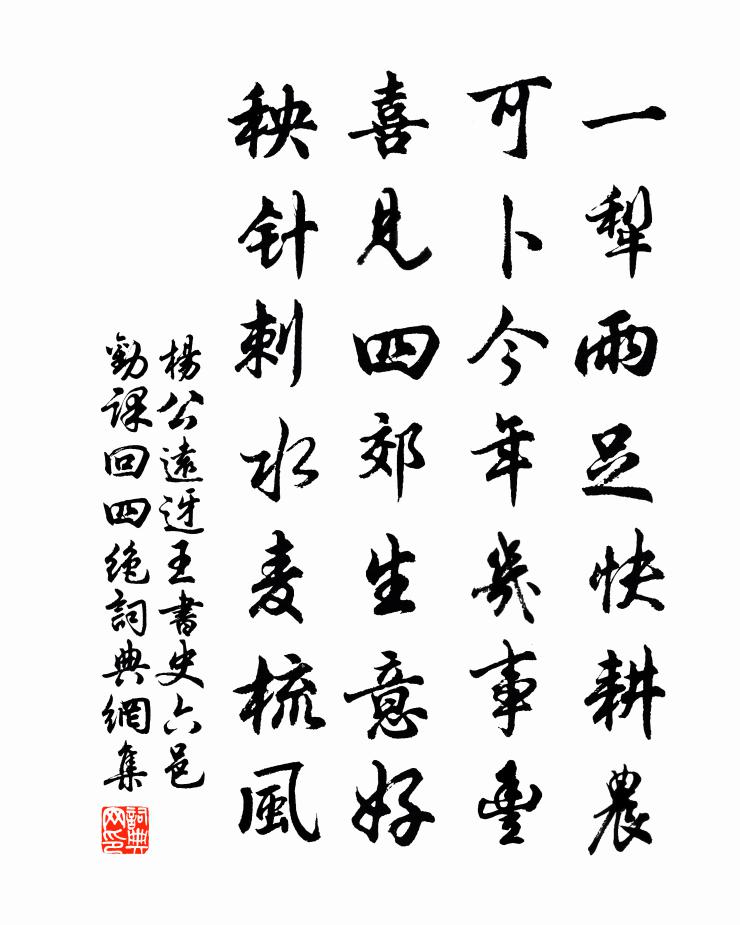 一犁雨足快耕農
可卜今年幾事豐
喜見四郊生意好
秧针刺水麦梳風
楊公遠迓王書史六邑
勸課回四絶詞典網集
詞典网印